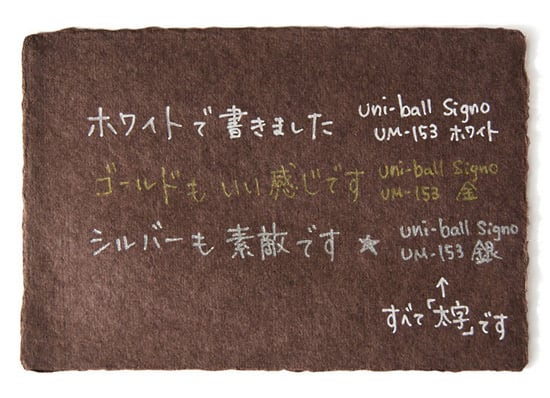 ホワイトで書きました
uni-ball Signo
UM-153 ホワイト
ゴールドもいい感じです
uni-ball Signo
UM-153 金
シルバーも素敵です★
uni-ball Signo
UM-153 銀
↑
すべて「太字」です